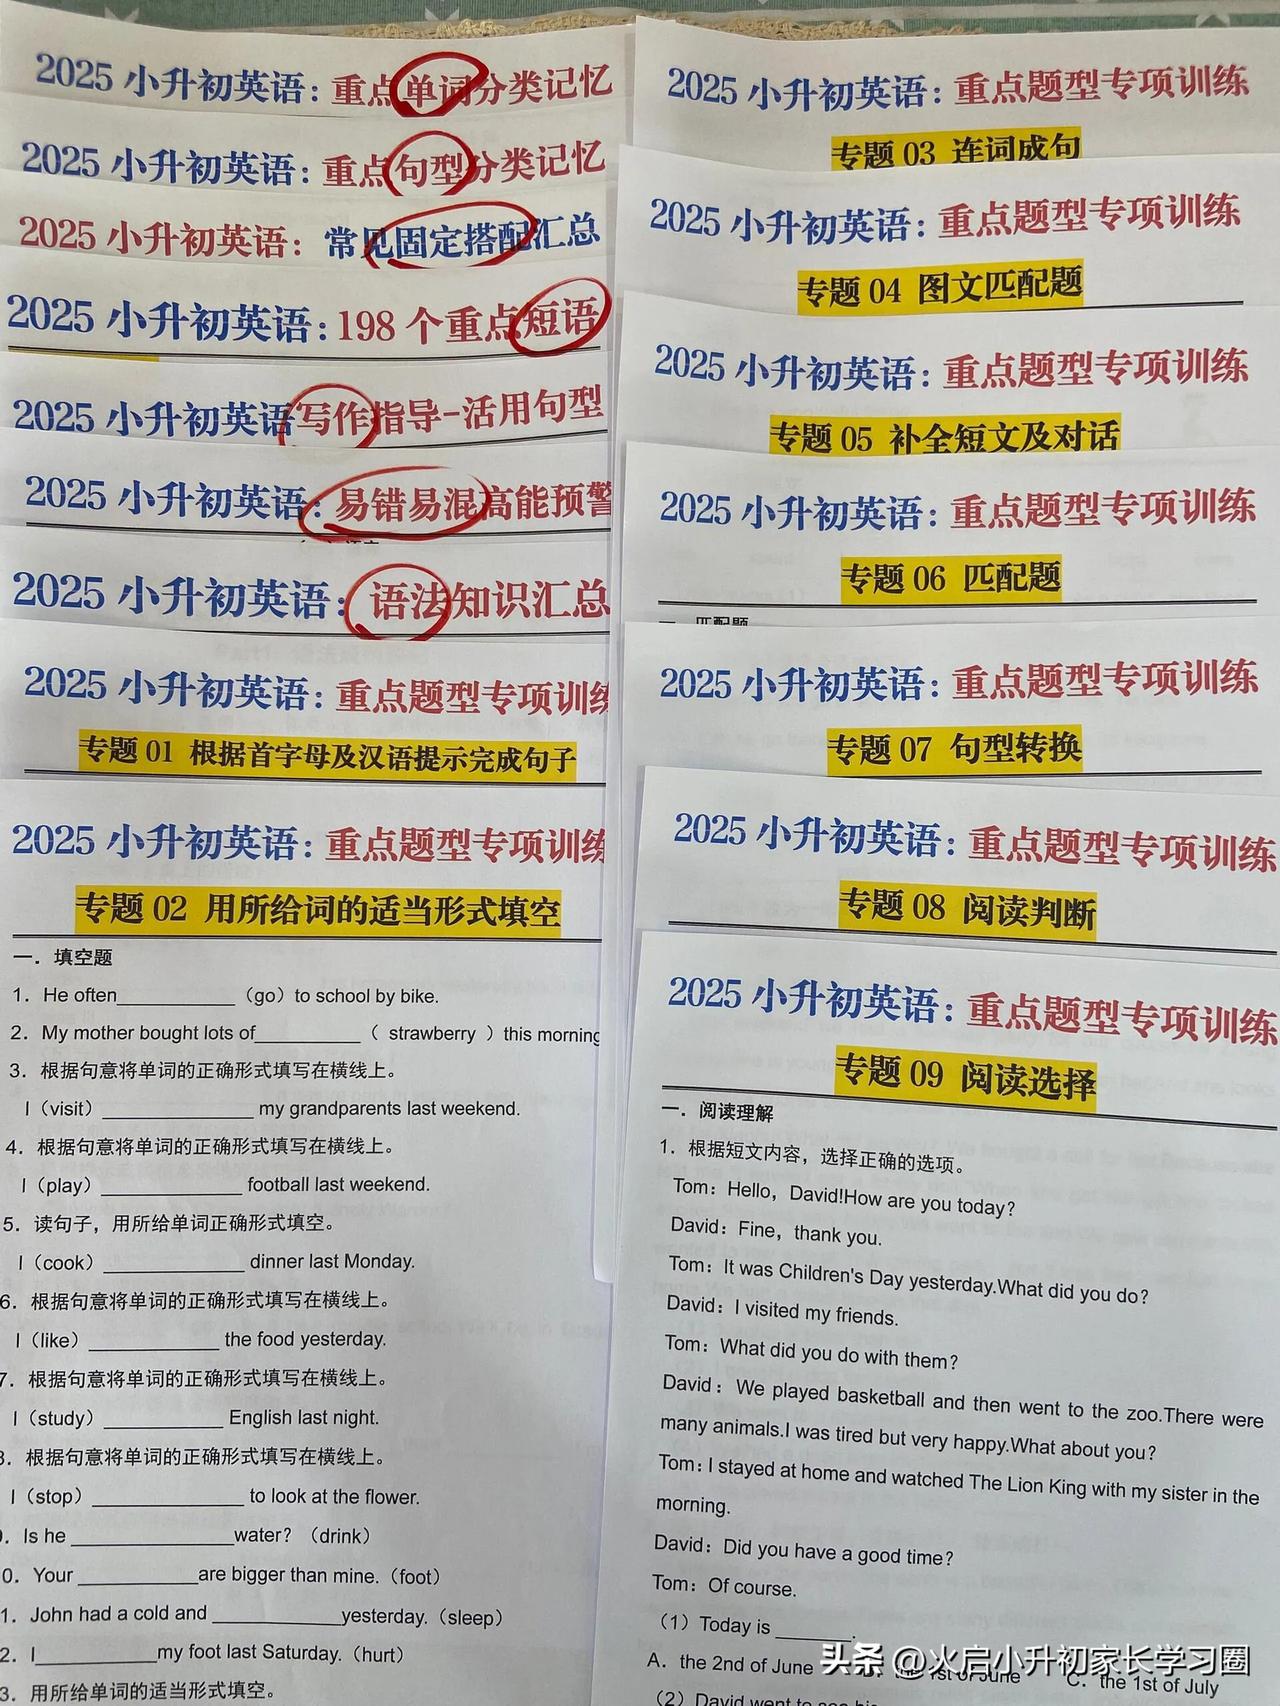 2025 小升初英语：重点单词分类记忆
2025 小升初英语：重点句型分类记忆
2025 小升初英语：常见固定搭配汇总
2025 小升初英语：198 个重点短语
2025 小升初英语写作指导-活用句型
2025 小升初英语：易错易混高能预警
2025 小升初英语：语法知识汇总
2025 小升初英语：重点题型专项训练
专题 01 根据首字母及汉语提示完成句子
2025 小升初英语：重点题型专项训练
专题 02 用所给词的适当形式填空
一．填空题
1．He often___________（go）to school by bike.
2．My mother bought lots of__________（ strawberry ）this morning
3．根据句意将单词的正确形式填写在横线上。
I（visit）______________ my grandparents last weekend.
4．根据句意将单词的正确形式填写在横线上。
I（play）_____________ football last weekend.
5．读句子，用所给单词正确形式填空。
I（cook）_____________ dinner last Monday.
6．根据句意将单词的正确形式填写在横线上。
I（like）____________ the food yesterday.
7．根据句意将单词的正确形式填写在横线上。
I（study）___________ English last night.
8．根据句意将单词的正确形式填写在横线上。
I（stop）______________ to look at the flower.
．Is he _______________water？（drink）
0．Your ___________are bigger than mine.（foot）
1．John had a cold and ____________yesterday.（sleep）
2．I___________my foot last Saturday.（hurt）
3．用所给单词的适当形式填空。
2025 小升初英语：重点题型专项训练
专题 03 连词成句
2025 小升初英语：重点题型专项训练
专题 04 图文匹配题
2025 小升初英语：重点题型专项训练
专题 05 补全短文及对话
2025 小升初英语：重点题型专项训练
专题 06 匹配题
一．匹配题
2025 小升初英语：重点题型专项训练
专题 07 句型转换
2025 小升初英语：重点题型专项训练
专题 08 阅读判断
2025 小升初英语：重点题型专项训练
专题 09 阅读选择
一．阅读理解
1．根据短文内容，选择正确的选项。
Tom：Hello，David!How are you today？
David：Fine，thank you.
Tom：It was Children's Day yesterday.What did you do？
David：I visited my friends.
Tom：What did you do with them？
David：We played basketball and then went to the zoo.There were
many animals.I was tired but very happy.What about you？
Tom：I stayed at home and watched The Lion King with my sister in the
morning.
David：Did you have a good time？
Tom：Of course.
（1）Today is _______.
A．the 2nd of June the 1st of June C．the 1st of July
（2）David went to
头条 @火启小升初家长学习圈